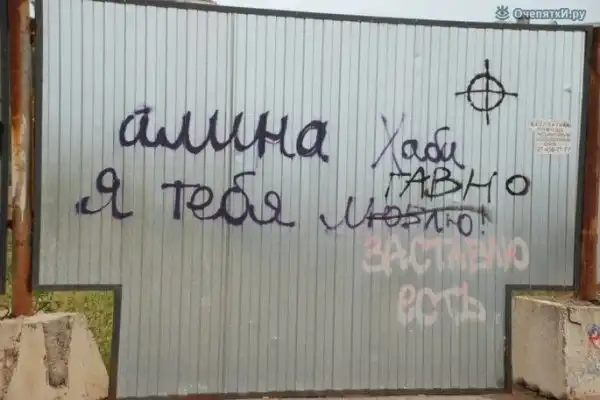 ОчепяткИ.ру
алина Хаби
ГАВНО
я тебя люблю!
ЗАСТАВЛЮ
есть